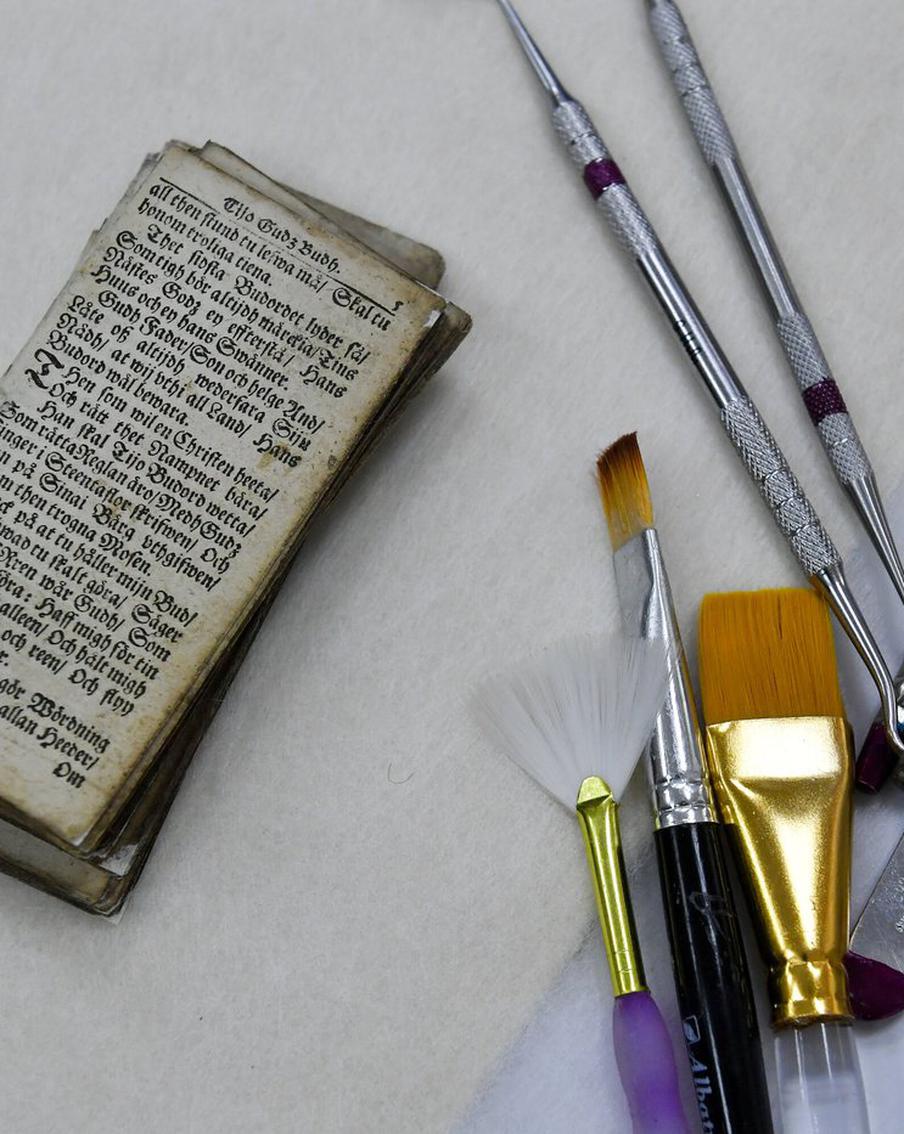 Tijo Gudz Budh.
all then stund tu lefwa må/ Skal tu
honom troliga tiena.
Thet sidsta Budordet lyder så/
Som tigh bör altijdh märckia/ Tins
Nästes Godz ey effterstå/ Hans
Huus och ey hans Swänner.
Gudh Fader/ Son och helge And/
Låte oß altijdh wederfara Sijn
Nådh/ at wij vthi all Land/ Hans
Budord wäl bewara.
THen som wil en Christen heeta/
Och rätt thet Nampnet bära/
Han skal Tijo Budord wetta/
Som rätta Reglan äro/ Medh Gudz
finger i Steentaflor skrifwen/ Och
på Sinai Bärg vthgifwen/
then trogna Mosen.
på at tu håller mijn Bud/
hwad tu skalt göra/ Säger
HErren wår Gudh/ Som
: Haff migh för tin
alleen/ Och hålt migh
och reen/ Och flyy
gör Wördning
allan Heeder/
Om